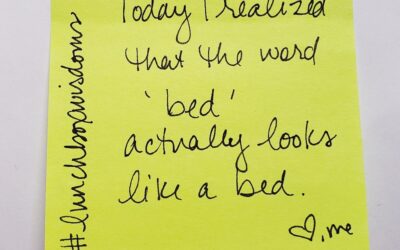 Today I realized
that the word
'bed'
actually looks
like a bed.
♡, me
#lunchboxwisdoms